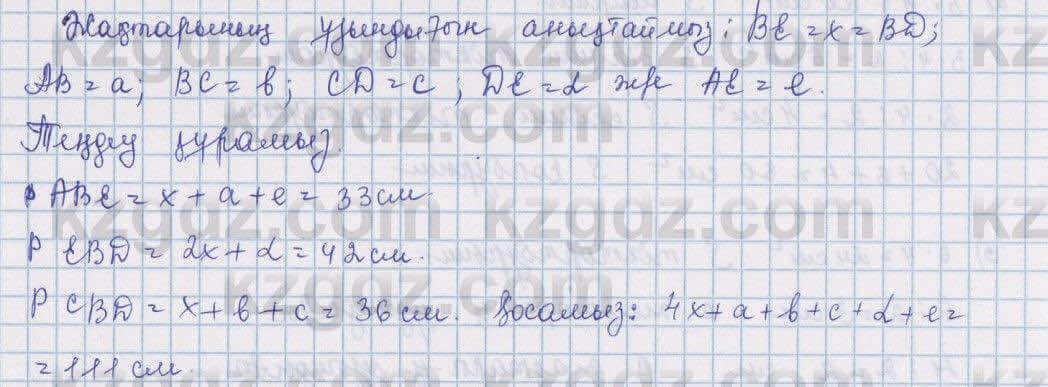 Жақтарының ұзындығын анықтаймыз: BE = x = BD;
AB = a; BC = b; CD = c; DE = d және AE = e.
Теңдеу құрамыз.
P ABE = x + a + e = 33 см.
P EBD = 2x + d = 42 см.
P CBD = x + b + c = 36 см. Қосамыз: 4x + a + b + c + d + e =
= 111 см.
kzgdz.com